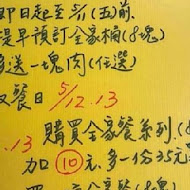 即日起至5/11(五)前
提早預訂全家桶(8塊)
多送一塊肉(任選)
餐日 5/12.13
.13 購買全家餐系列.(
加 10 元.多一份35元